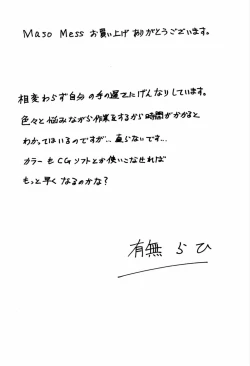 Maso Mess お買い上げありがとうございます。
相変わらず自分の手の遅さにげんなりしています。
色々と悩みながら作業をするから時間がかかると
わかってはいるのですが…直らないです…
カラーもCGソフトとか使いこなせれば
もっと早くなるのかな?
有無らひ